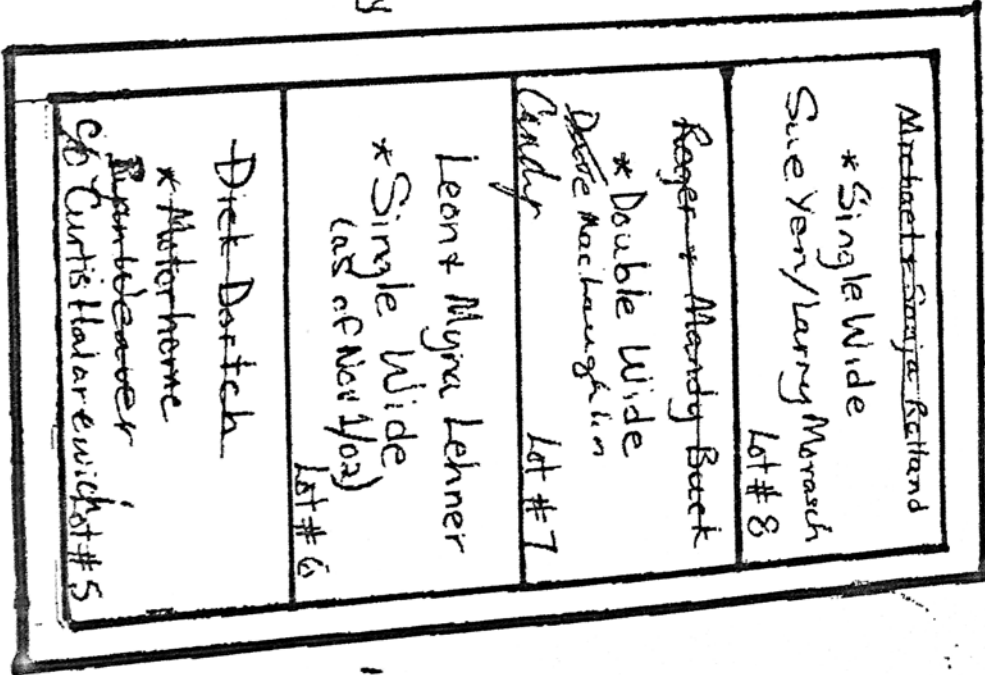 Michael + Sonja Rolland
* Single Wide
Sue Yen/Larry Morasch
Lot # 8
Roger + Mandy Buck
* Double Wide
Dave MacLaughlin
Candy
Lot # 7
Leon + Myrna Lehner
* Single Wide
(as of Nov 1/02)
Lot # 6
Dick Dortch
* Motorhome
Weaver
c/o Curtis
Lot # 5